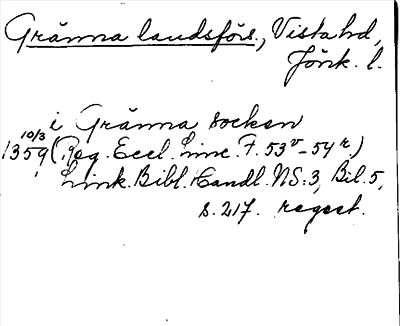 Gränna landsförs., Vista hd,
Jönk. l.
i Gränna socken
10/3
1359 (Reg. Eccl. Linc. F. 53v-54r)
Link. Bibl. Handl. NS:3, Bil. 5,
s. 217. regest.